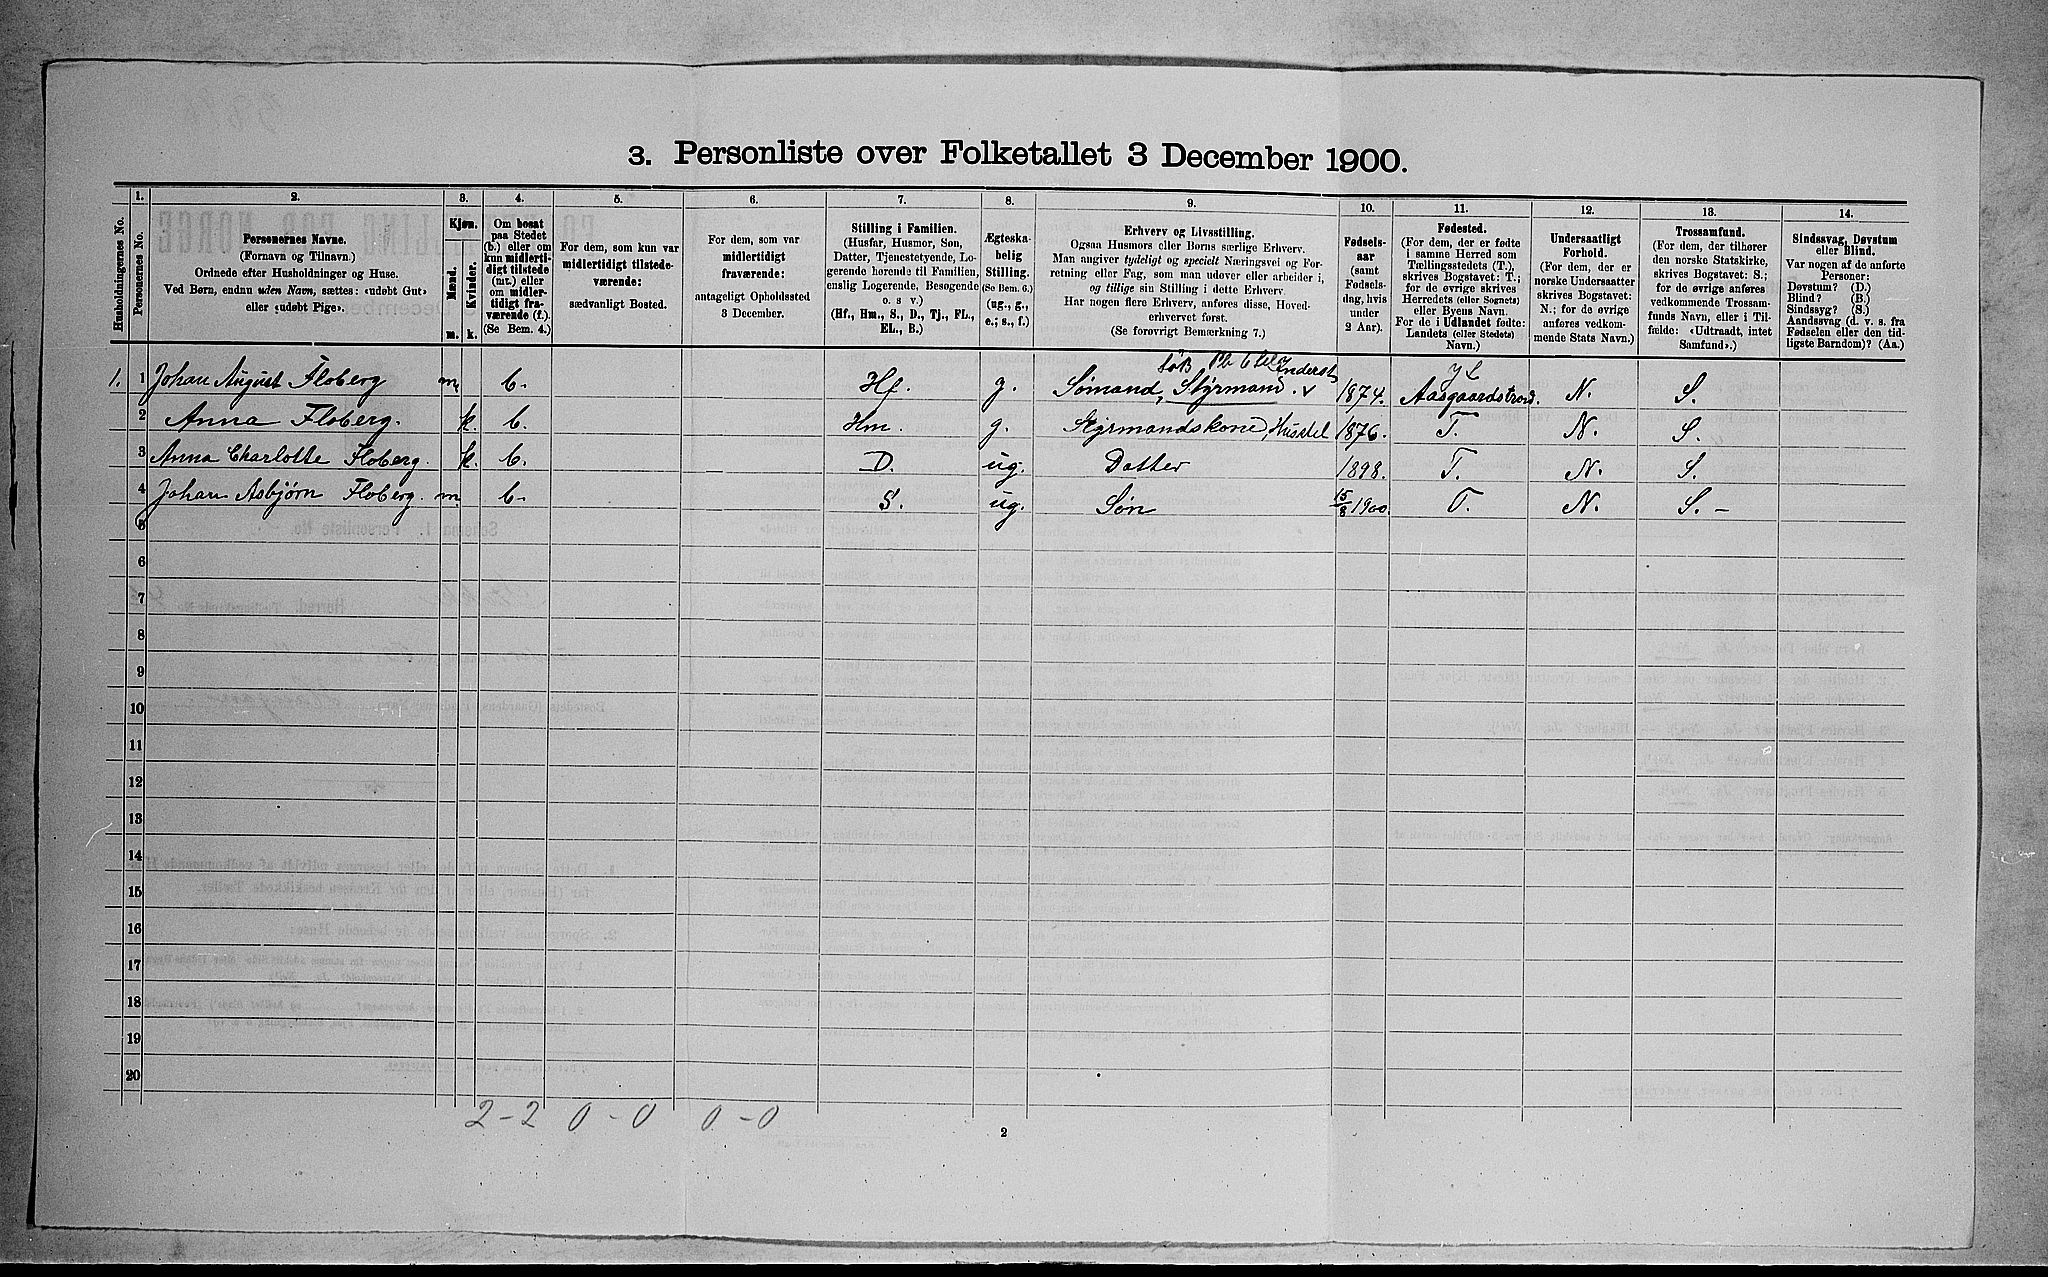 3. Personliste over Folketallet 3 December 1900.
Husholdningernes No.
1.
Personernes No.
2.
Personernes Navne.
(Fornavn og Tilnavn.)
Ordnede efter Husholdninger og Huse.
Ved Børn, endnu uden Navn, sættes: «udøbt Gut»
eller «udøbt Pige».
3.
Kjøn.
Mænd.
Kvinder.
m.
k.
4.
Om bosat
paa Stedet
(b.) eller om
kun midlerti-
digt tilstede
(mt.) eller
om midler-
tidigt fra-
værende (f.).
(Se Bem. 4.)
5.
For dem, som kun var
midlertidigt tilstede-
værende:
sædvanligt Bosted.
6.
For dem, som var
midlertidigt
fraværende:
antageligt Opholdssted
3 December.
7.
Stilling i Familien.
(Husfar, Husmor, Søn,
Datter, Tjenestetyende, Lo-
gerende hørende til Familien,
enslig Logerende, Besøgende
o. s v.)
(Hf., Hm., S., D., Tj., FL.,
EL., B.)
8.
Ægteska-
belig
Stilling.
(Se Bem. 6.)
(ug., g.,
e.; s., f.)
9.
Erhverv og Livsstilling.
Ogsaa Husmors eller Børns særlige Erhverv.
Man angiver tydeligt og specielt Næringsvei og For-
retning eller Fag, som man udøver eller arbeider i,
og tillige sin Stilling i dette Erhverv.
Har nogen flere Erhverv, anføres disse, Hoved-
erhvervet først.
(Se forøvrigt Bemærkning 7.)
10.
Fødsels-
aar
(samt
Fødsels-
dag, hvis
under
2 Aar).
11.
Fødested.
(For dem, der er fødte
i samme Herred som
Tællingsstedets (T.),
skrives Bogstavet: T.;
for de øvrige skrives
Herredets (eller Sognets)
eller Byens Navn.
For de i Udlandet fødte:
Landets (eller Stedets)
Navn.)
12.
Undersaatligt
Forhold.
(For dem, der er
norske Undersaatter
skrives Bogstavet:
N.; for de øvrige
anføres vedkom-
mende Stats Navn.)
13.
Trossamfund.
(For dem, der tilhører
den norske Statskirke,
skrives Bogstavet: S.;
for de øvrige anføres
vedkommende Trossam-
funds Navn, eller i Til-
fælde: «Udtraadt, intet
Samfund».)
14.
Sindssvag, Døvstum
eller Blind.
Var nogen af de anførte
Personer:
Døvstum? (D.)
Blind? (B.)
Sindssyg? (S.)
Aandssvag (d. v. s. fra
Fødselen eller den tid-
ligste Barndom)? (Aa.)
1. 1 Johan August Floberg m b. Hf. g. Sømand, Styrmand 1874. Aasgaardstrand. N. S.
2 Anna Floberg. k. b. Hm. g. Styrmandskone, Husstel 1876. T. N. S.
3 Anna Charlotte Floberg. k. b. D. ug. Datter 1898. T. N. S.
4 Johan Asbjørn Floberg. m. b. S. ug. Søn 15/8 1900. T. N. S. -
5
6
7
8
9
10
11
12
13
14
15
16
17
18
19
20
2 - 2 0 - 0 0 - 0
2